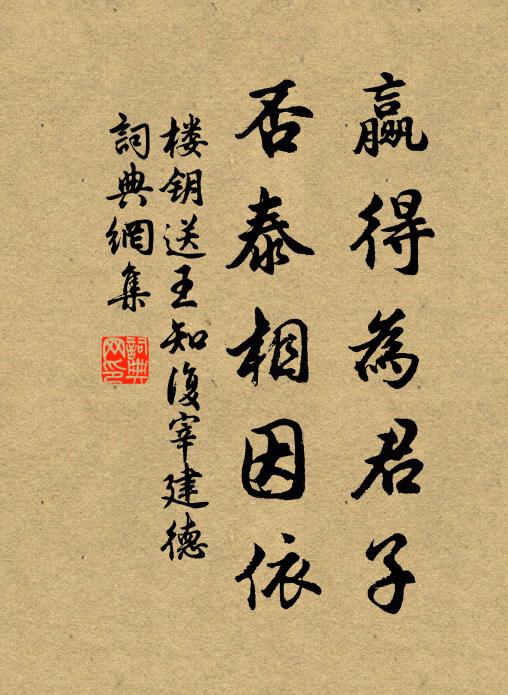 赢得為君子
否泰相因依
楼钥送王知復宰建德
詞典網集
詞典
网印